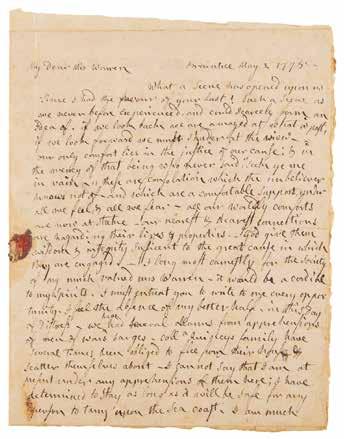 My Dear Mrs Warren Braintree May 2 1775
What a Scene has opened upon us
Since I had the favour of your last! Such a Scene as
we never before experienced and could scarcely form an
Idea of. if we look back we are amazed at what is past,
if we look forward we must shudder at the view
our only comfort lies in the justice of our cause; &
the mercy of that being who never said Seek ye me
in vain these are consolation which the unbeliever
knows not of and which are a comfortable support under
all we feel & all we fear all our worldly comforts
are now at stake our nearest & dearest connections
are hazarding their lives & properties God give them
& integrity sufficent to the great cause in which
they are engaged I long most earnestly for the Society
of my much valued Mrs Warren it would be a cordial
to my Spirits. I must intreat you to write to me every oppor
tunity. I feel the absence of my better half in this Day
of Distress we have had Several Alarms from apprehensions
of men of wars barges coll Quincys family have
Several times been obliged to flee from their House &
scatter themselves about I cannot Say that I am at
under any apprehensions of them here; I have
determined to Stay as long as it will be safe for any
person to tarry upon the Sea coast. I am much